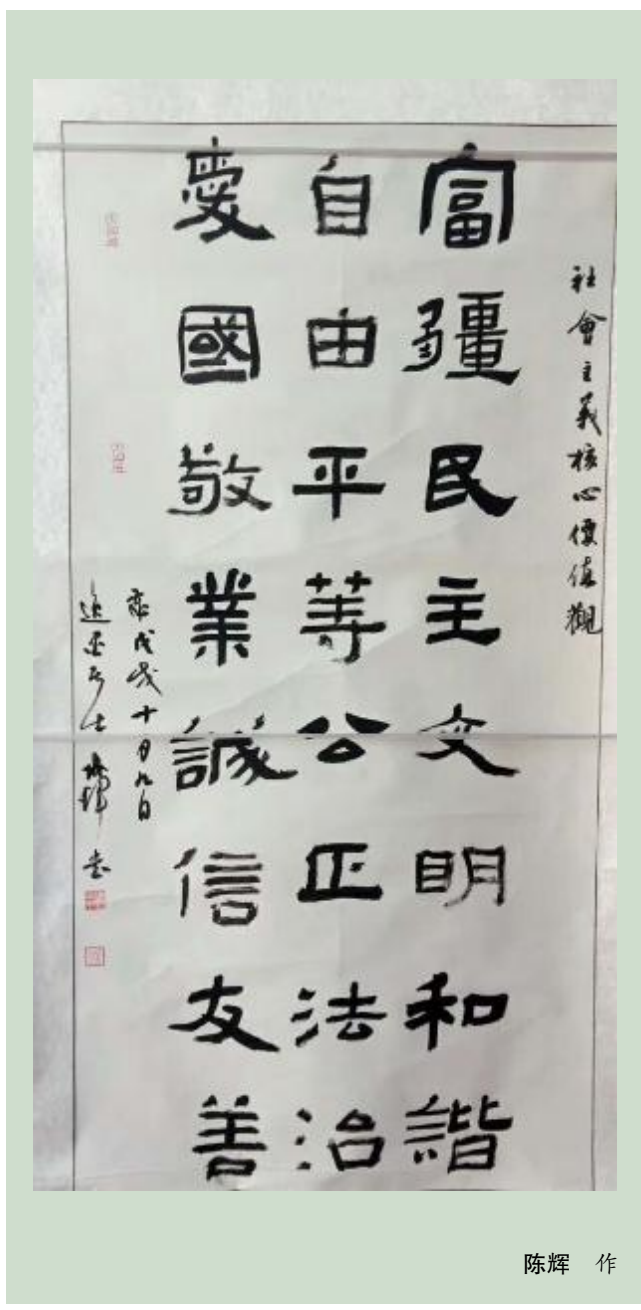 社會主義核心價值觀
富疆民主文明和諧
自由平等公正法治
愛國敬業誠信友善
戊戌十月九日
陈辉 作